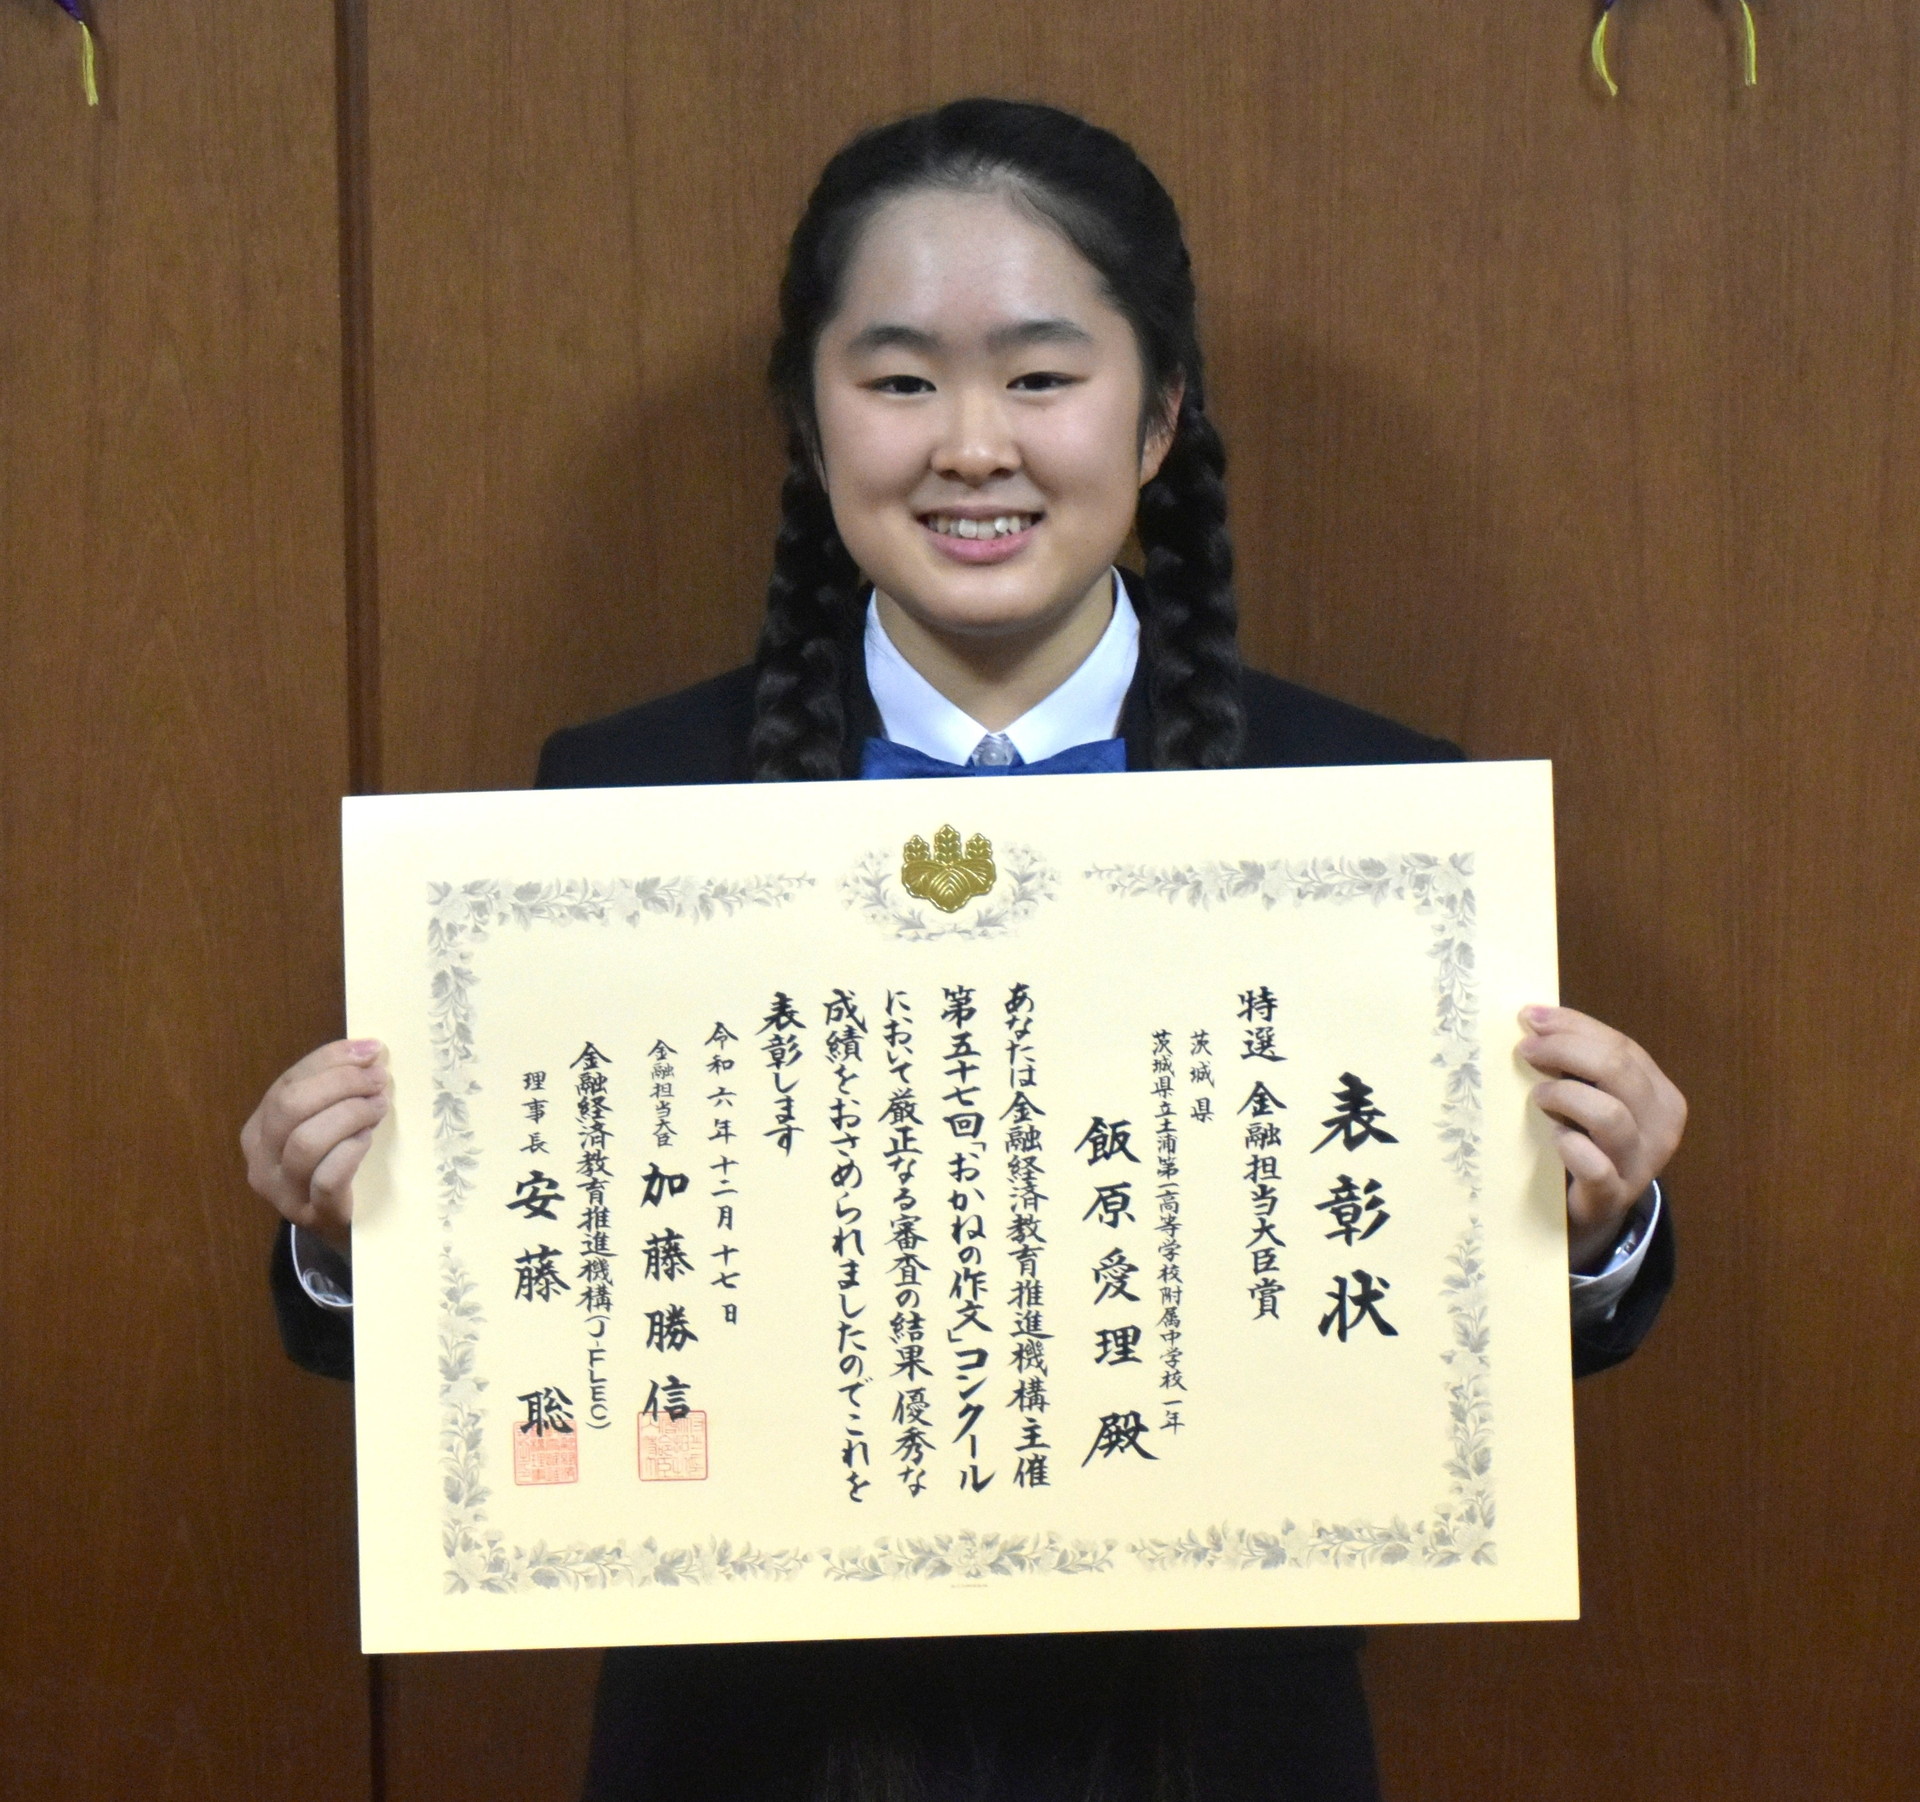 表彰状
特選 金融担当大臣賞
茨城県
茨城県立土浦第一高等学校附属中学校一年
飯原愛理 殿
あなたは金融経済教育推進機構主催
第五十七回「おかねの作文」コンクール
において厳正なる審査の結果優秀な
成績をおさめられましたのでこれを
表彰します
令和六年十二月十七日
金融担当大臣 加藤勝信
金融経済教育推進機構(J-FLEC)
理事長 安藤 聡